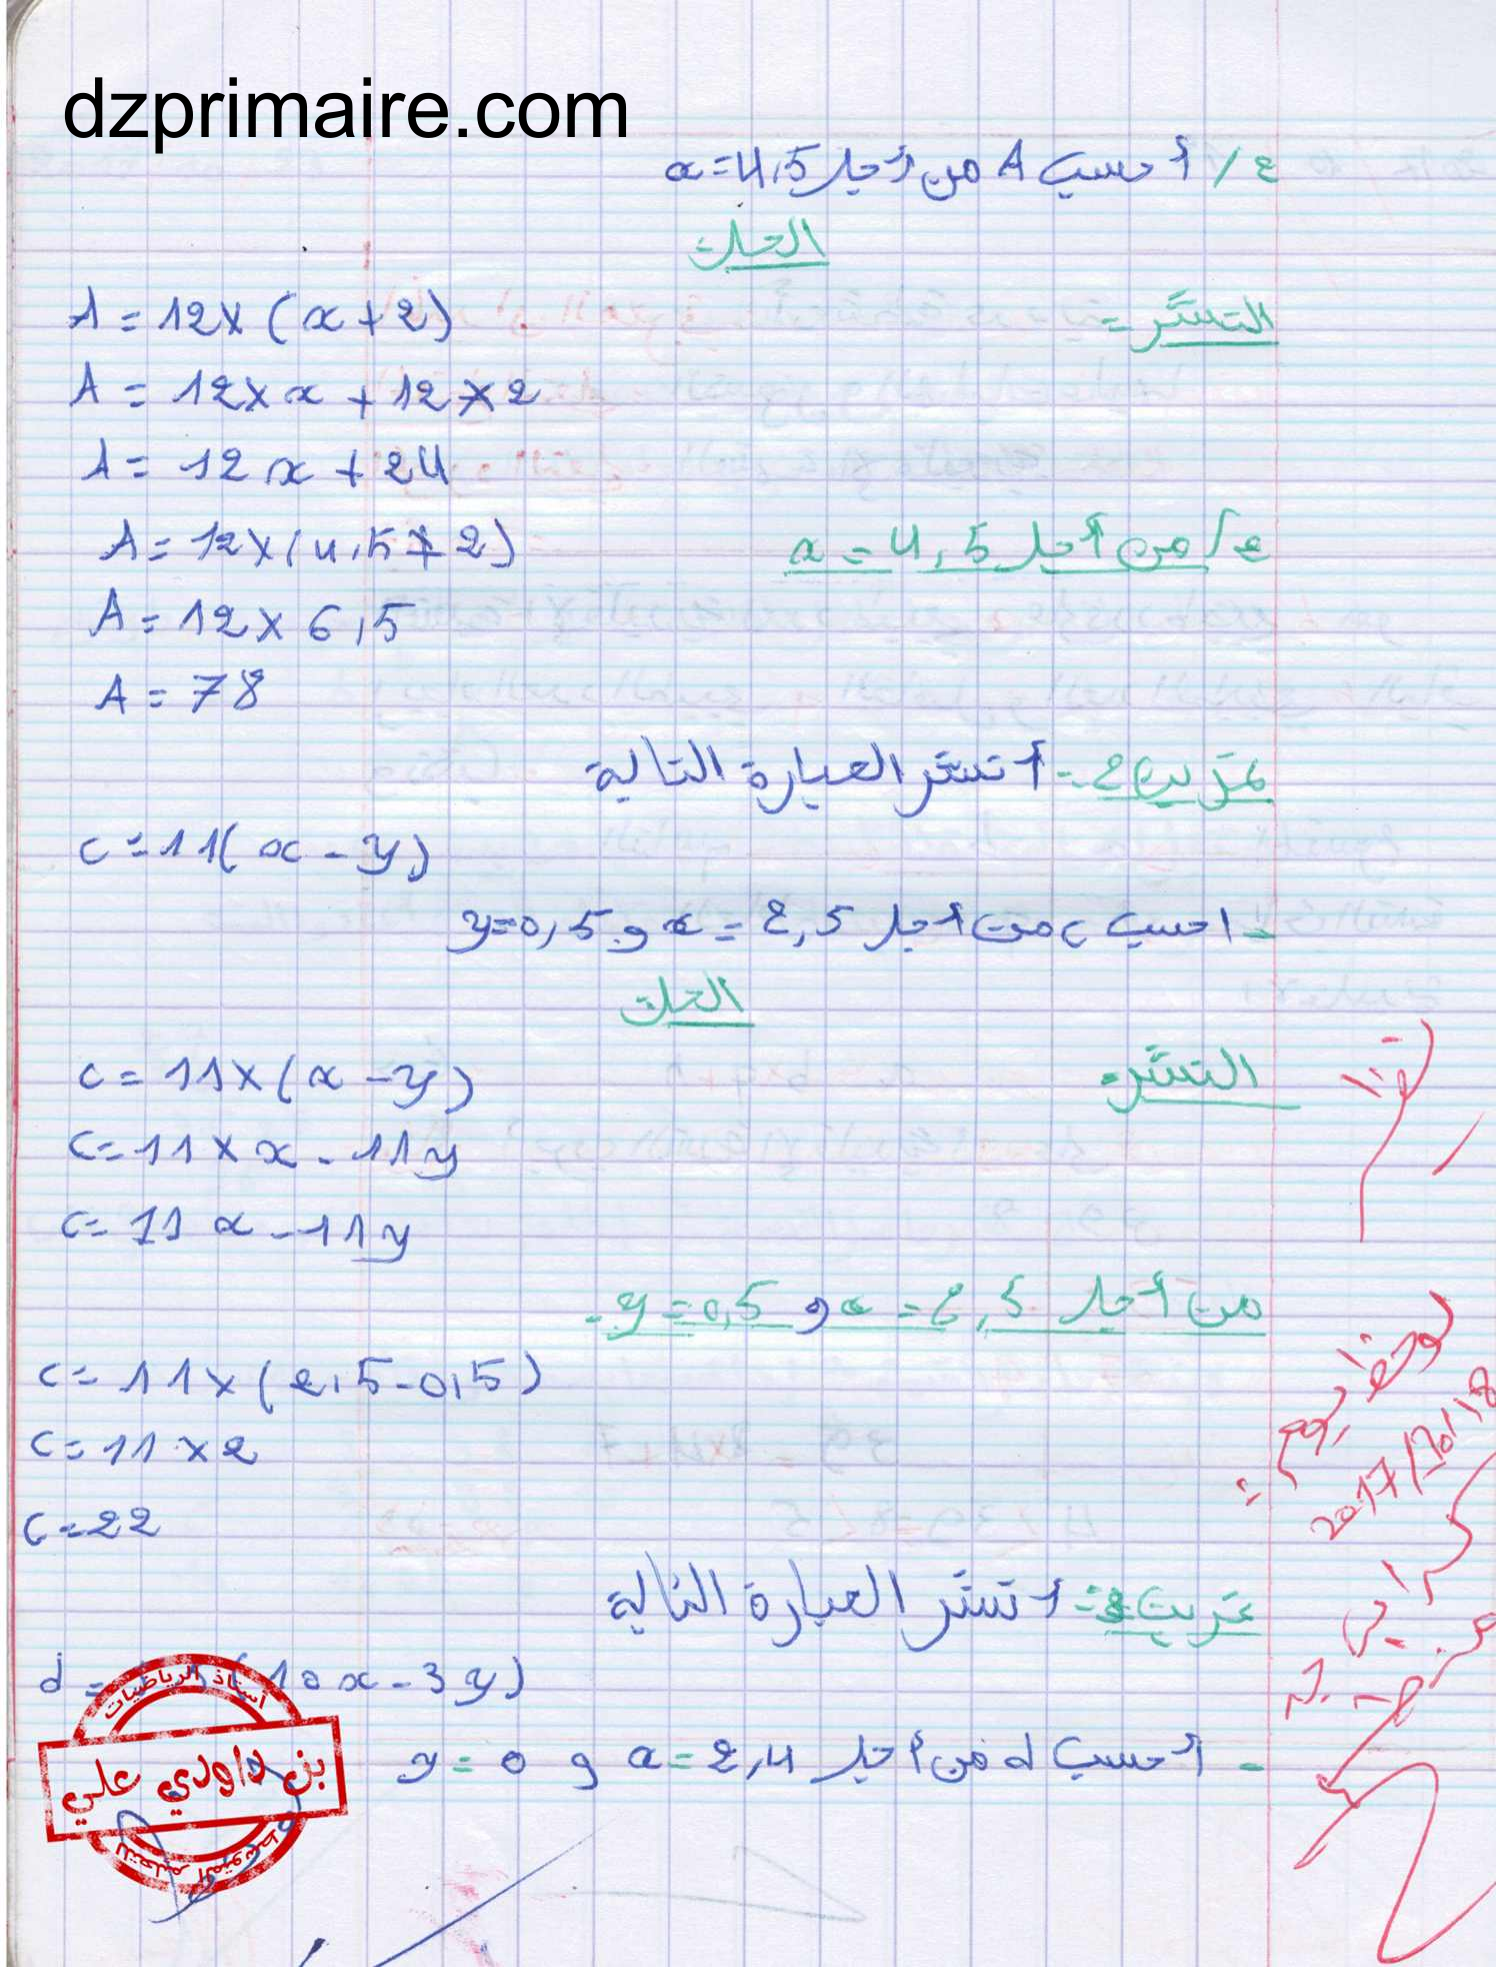 dzprimaire.com
2/ أحسب A من أجل x=4,5
الحل:
النشر:
A = 12×(x+2)
A = 12×x+12×2
A = 12x+24
2/ من أجل x=4,5
A = 12×(4,5+2)
A = 12×6,5
A = 78
تمرين 2:- أنشر العبارة التالية
c=11(x-y)
- احسب c من أجل x=2,5 و y=0,5
الحل:
النشر:
c=11×(x-y)
c=11×x-11y
c=11x-11y
من أجل x=2,5 و y=0,5:
c=11×(2,5-0,5)
c=11×2
c=22
تمرين 3:- أنشر العبارة التالية
d = (10x-3y)
- أحسب d من أجل x=2,4 و y=0
لوحظ يوم:
2017/10/18
أستاذ الرياضيات
بن داودي علي
للتعليم المتوسط